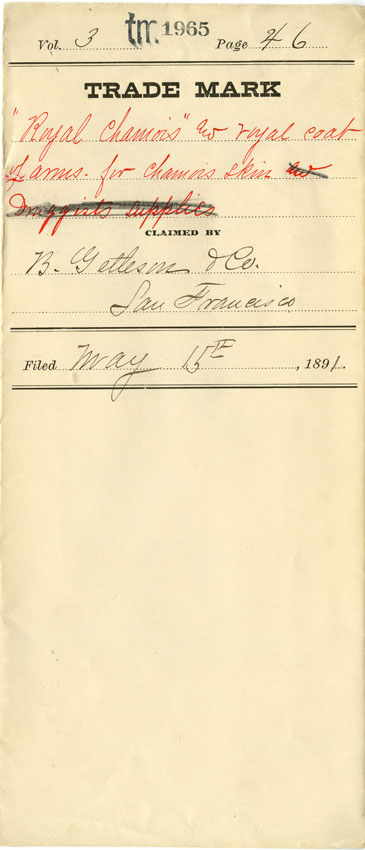 Vol. 3 tm 1965 Page 46
TRADE MARK
"Royal Chamois" and royal coat
of arms. for chamois skin and
Druggists supplies
CLAIMED BY
B. Getleson & Co.
San Francisco
Filed May 15th, 1891.